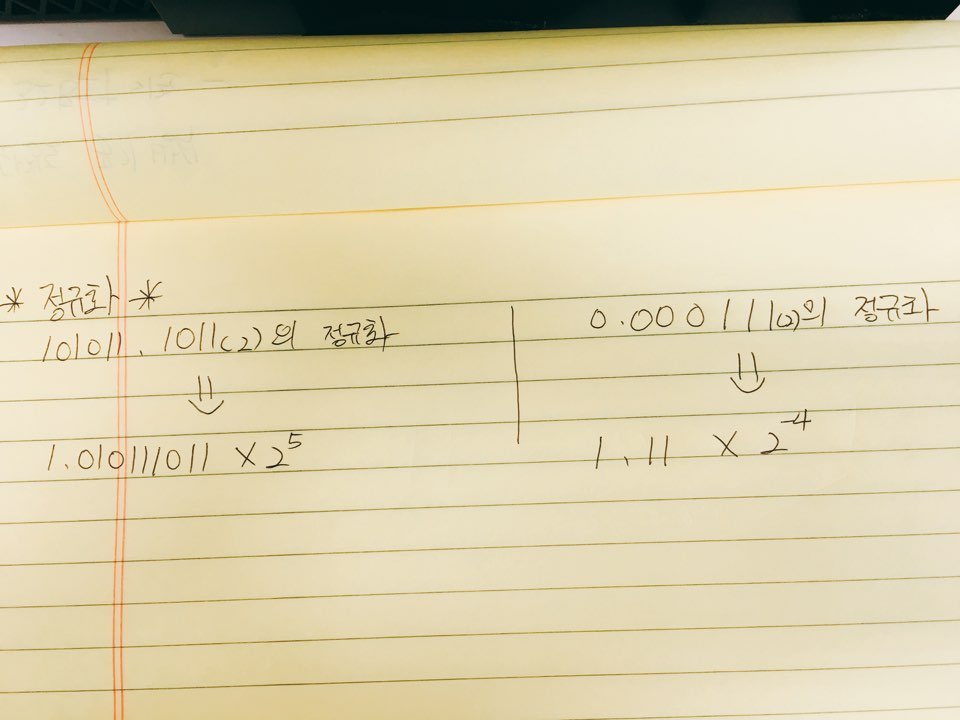 * 정규화 *
101011.1011(2)의 정규화
⇓
1.010111011 × 2⁵
0.000111(2)의 정규화
⇓
1.11 × 2⁻⁴